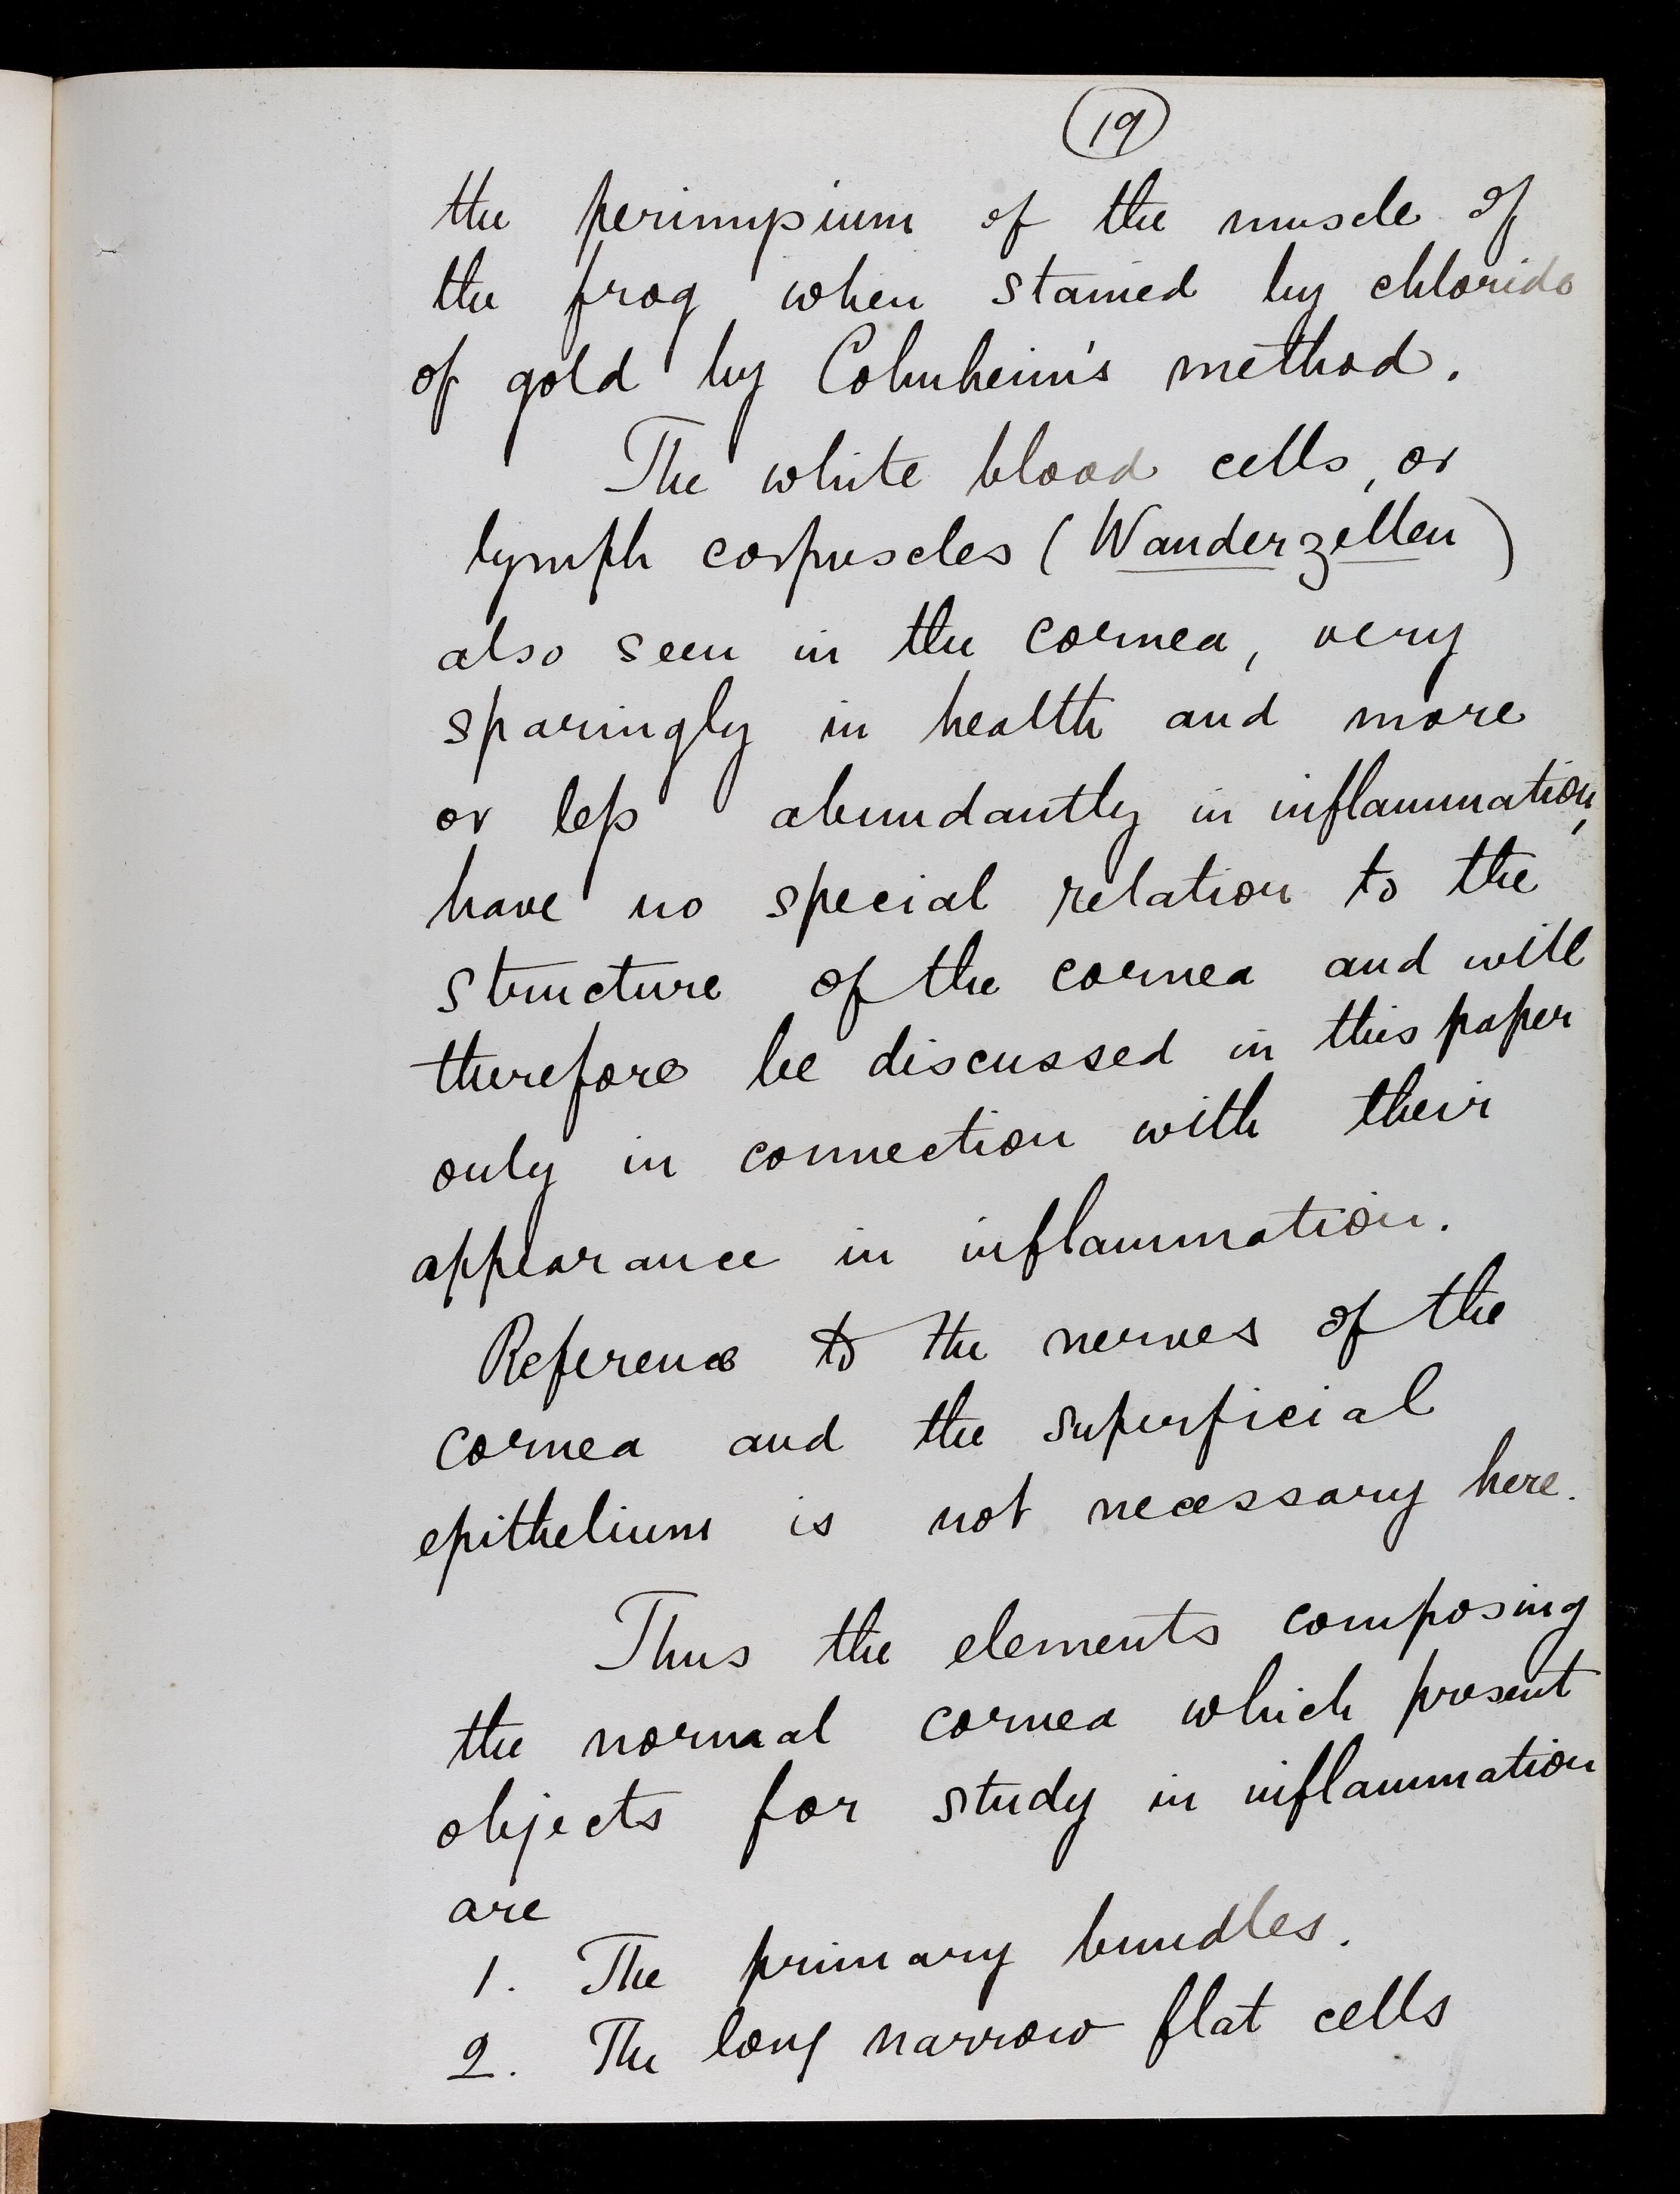 19
the perimysium of the muscle of
the frog when stained by chloride
of gold by Cohnheim's method.
The white blood cells, or
lymph corpuscles (Wanderzellen)
also seen in the cornea, very
sparingly in health and more
or less abundantly in inflammation,
have no special relation to the
structure of the cornea and will
therefore be discussed in this paper
only in connection with their
appearance in inflammation.
Reference to the nerves of the
cornea and the superficial
epithelium is not necessary here.
Thus the elements composing
the normal cornea which present
objects for study in inflammation
are
1. The primary bundles.
2. The long narrow flat cells